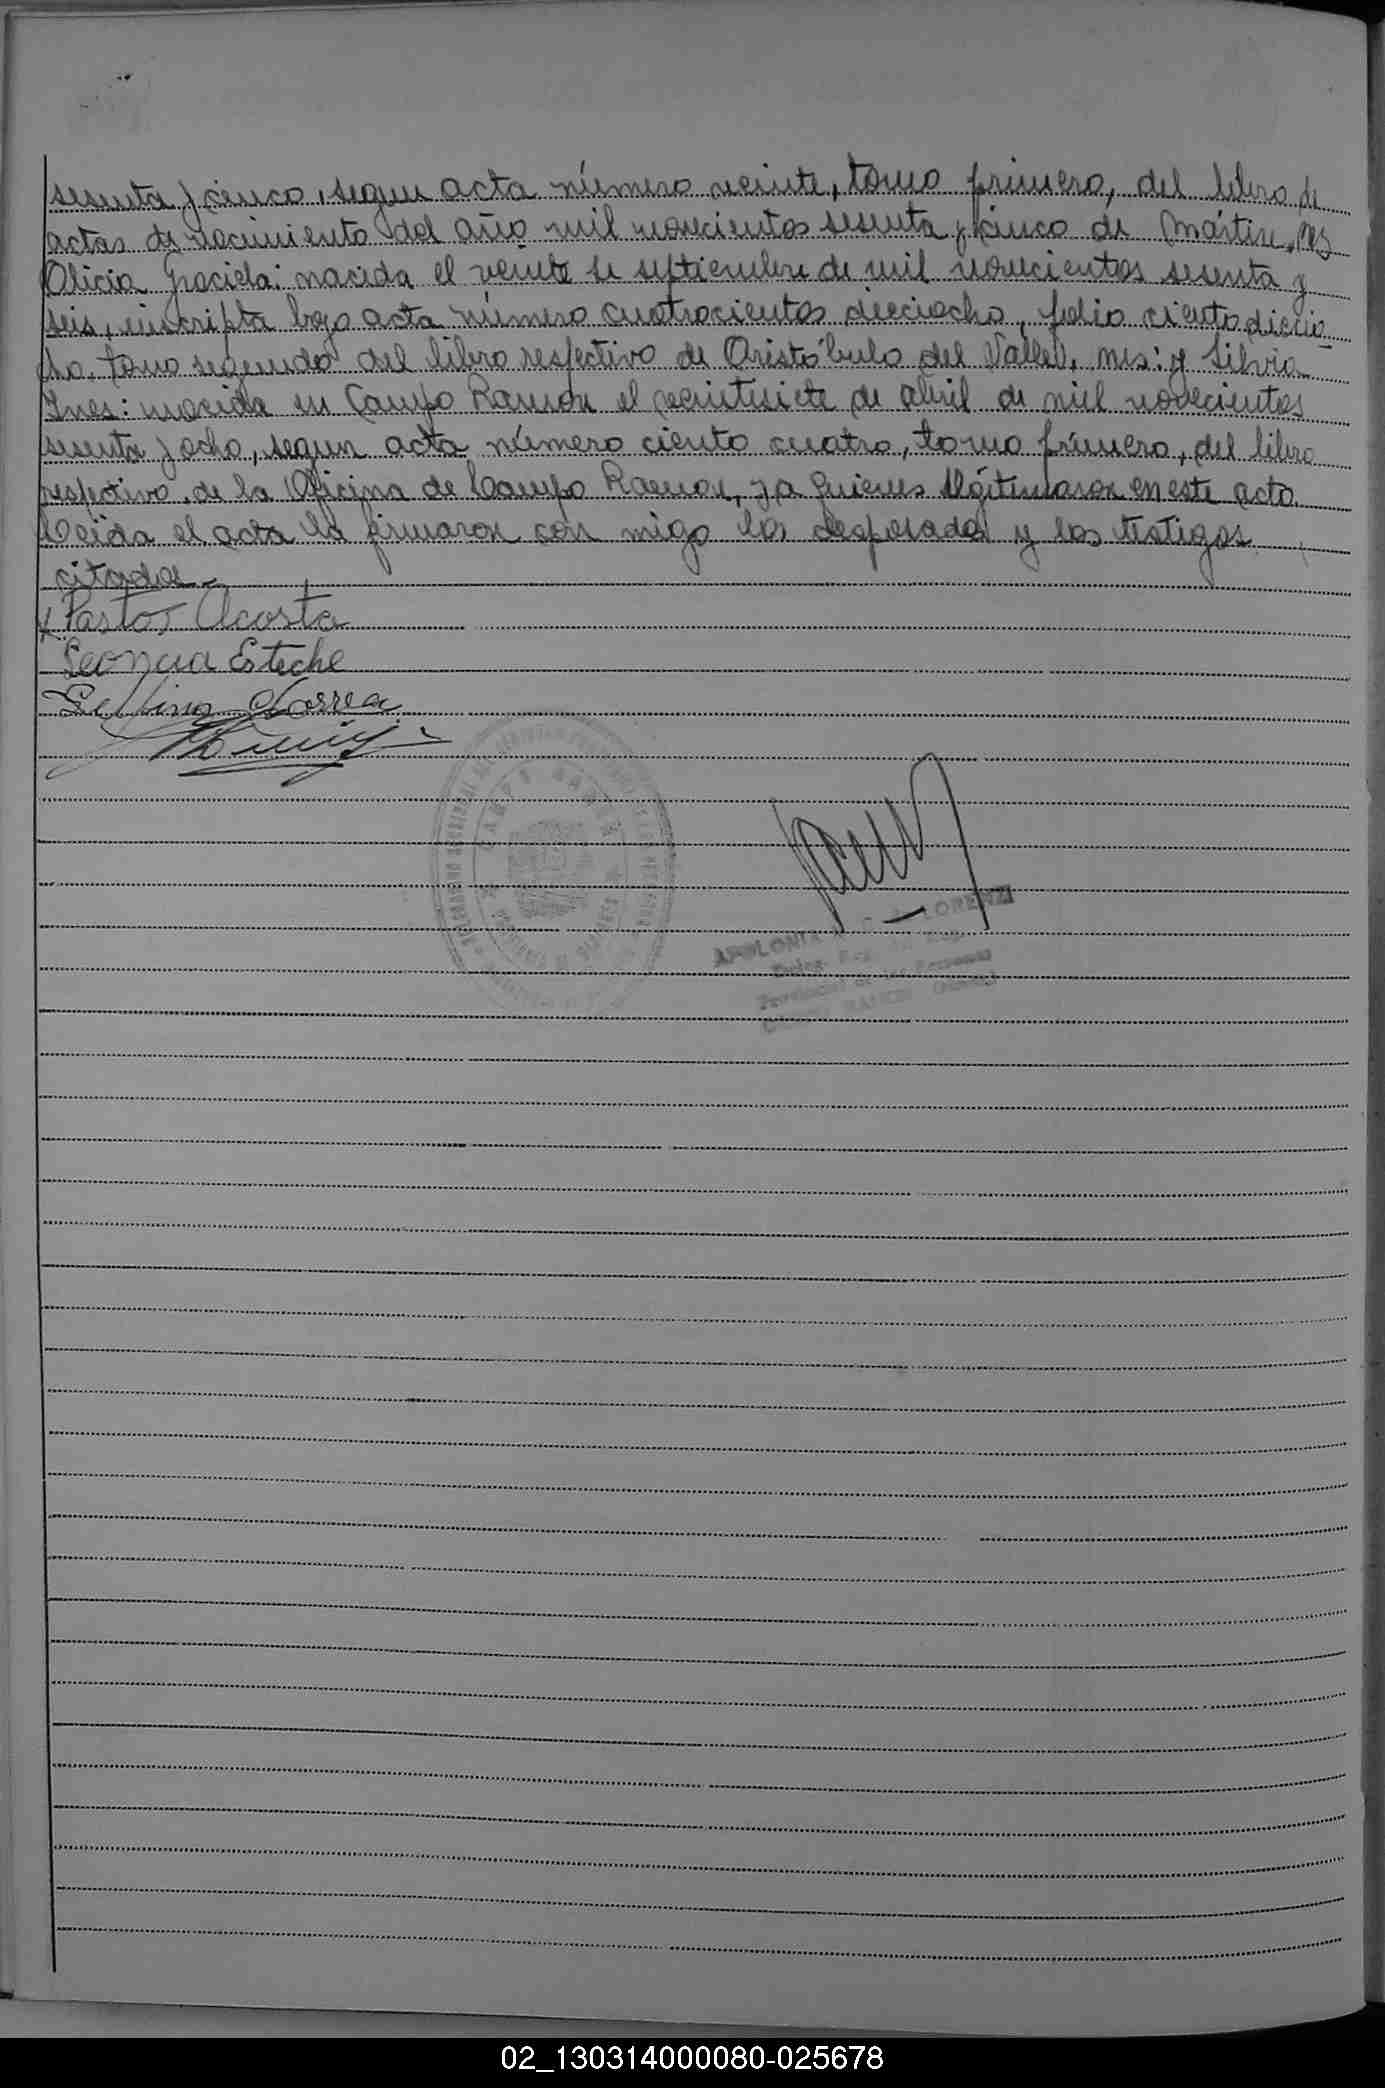 sesenta y cinco, segun acta número veinte, tomo primero, del libro de
actas de nacimiento del año mil novecientos sesenta y cinco de Mártires, mes
Olicia Graciela: nacida el veinte de septiembre de mil novecientos sesenta y
seis, inscripta bajo acta número cuatrocientos dieciocho, folio ciento diecio-
cho, tomo segundo del libro respectivo de Aristóbulo del Valle, mes: y Silvia
Ines: nacida en Campo Ramon el veintisiete de abril de mil novecientos
sesenta y ocho, segun acta número ciento cuatro, tomo primero, del libro
respectivo de la Oficina de Campo Ramon, y a quienes legitimaron en este acto.
Leida el acta la firmaron con migo los desposados y los testigos
citados.-
Pastor Acosta
Leoncia Esteche
Correa
CAMPO RAMON
APOLONIA LORENZI
Provincial de las Personas
CAMPO RAMON (Misiones)
02_130314000080-025678